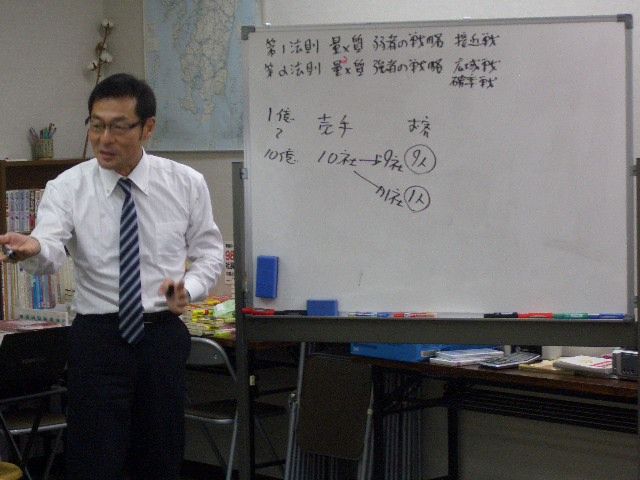 第1法則 量×質 弱者の戦略 接近戦
第2法則 量²×質 強者の戦略 広域戦
確率戦
1億 売手 お客
10億 10社→9社 9人
1社 1人
98